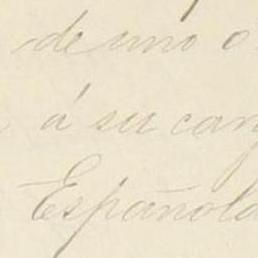 de uno o
á su carg
Española